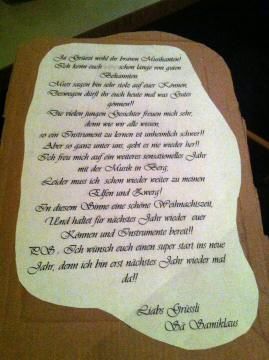 Ja Grüezi wohl ihr braven Musikanten!
Ich kenn euch schon lange von guten
Bekannten.
Muss sagen bin sehr stolz auf euer Können,
Deswegen dürft ihr euch heute mal was Gutes
gönnen!!
Die vielen jungen Gesichter freuen mich sehr,
denn wie wir alle wissen,
so ein Instrument zu lernen ist unheimlich schwer!!
Aber so ganz unter uns, gebt es nie wieder her!!
Ich freu mich auf ein weiteres sensationelles Jahr
mit der Musik in Berg,
Leider muss ich schon wieder weiter zu meinen
Elfen und Zwerg!
In diesem Sinne eine schöne Weihnachtszeit,
Und haltet für nächstes Jahr wieder euer
Können und Instrumente bereit!!
PS. Ich wünsch euch einen super start ins neue
Jahr, denn ich bin erst nächstes Jahr wieder mal
da!!
Liabs Grüssli
Sä Samiklaus